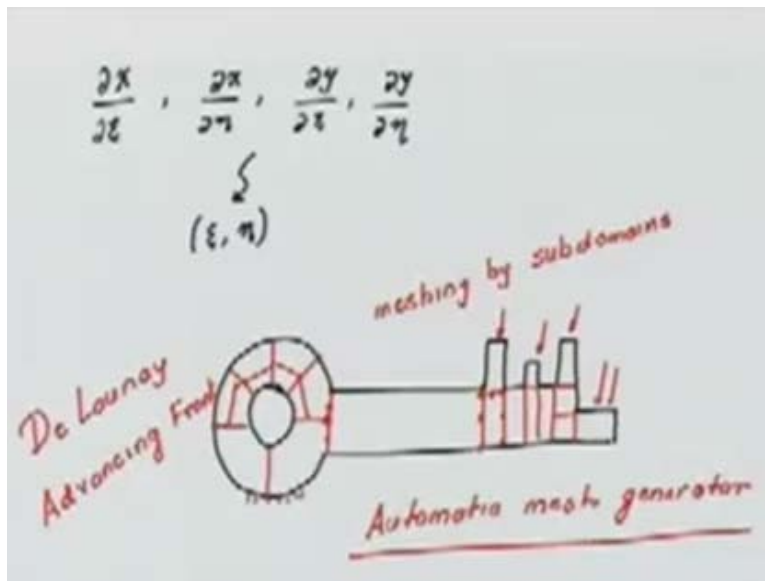 ∂x/∂ξ , ∂x/∂η , ∂y/∂ξ , ∂y/∂η
(ξ, η)
meshing by subdomains
De Launay
Advancing Front
Automatic mesh generator